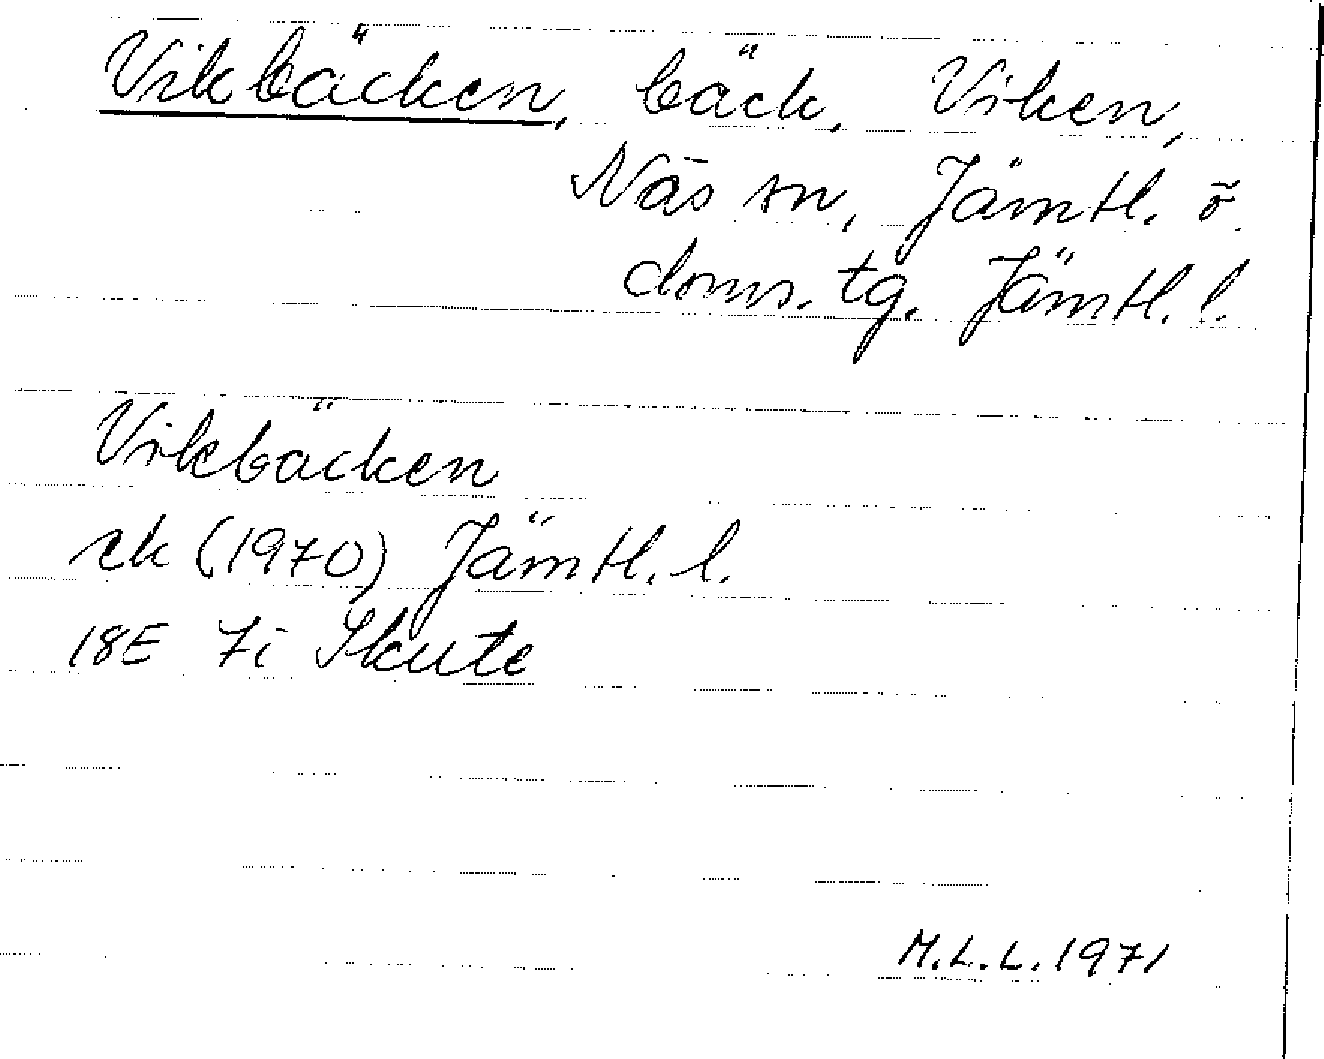 Vikbäcken, bäck, Viken,
Näs sn, Jämtl. ö.
doms. tg. Jämtl. l.
Vikbäcken
ek (1970) Jämtl. l.
18E 7i Skute
M.L.L. 1971